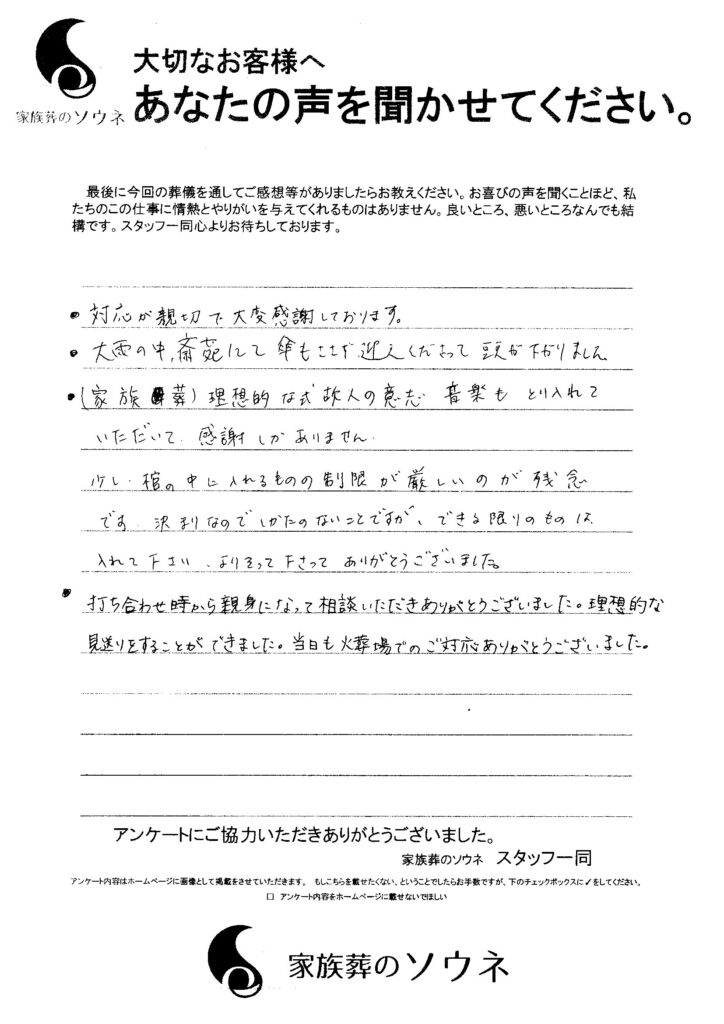 家族葬のソウネ
大切なお客様へ
あなたの声を聞かせてください。
最後に今回の葬儀を通してご感想等がありましたらお教えください。お喜びの声を聞くことほど、私
たちのこの仕事に情熱とやりがいを与えてくれるものはありません。良いところ、悪いところなんでも結
構です。スタッフ一同心よりお待ちしております。
• 対応が親切で大変感謝しております。
• 大雨の中、斎苑にて傘もささず迎えてくださって頭が下がりました
• (家族葬) 理想的な式 故人の意志 音楽もとり入れて
いただいて、感謝しかありません。
少し、棺の中に入れるものの制限が厳しいのが残念
です。決まりなのでしかたのないことですが、できる限りのものは
入れて下さい、よりそって下さってありがとうございました。
• 打ち合わせ時から親身になって相談いただきありがとうございました。理想的な
見送りをすることができました。当日も火葬場でのご対応ありがとうございました。
アンケートにご協力いただきありがとうございました。
家族葬のソウネ スタッフ一同
アンケート内容はホームページに画像として掲載をさせていただきます。 もしこちらを載せたくない、ということでしたらお手数ですが、下のチェックボックスに✓をしてください。
□ アンケート内容をホームページに載せないでほしい
家族葬のソウネ